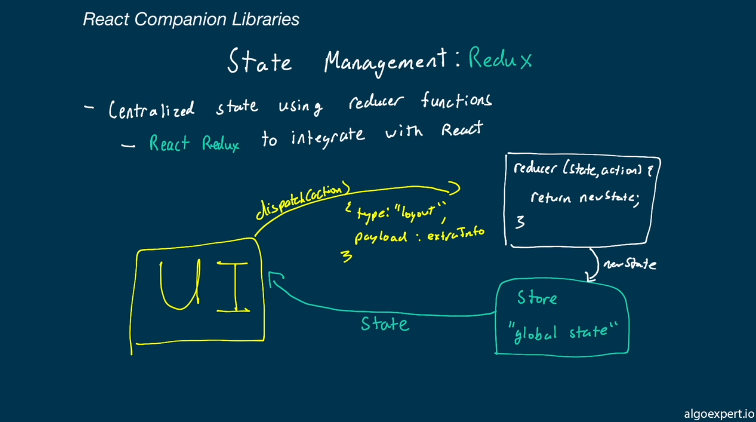 React Companion Libraries
State Management: Redux
- Centralized state using reducer functions
- React Redux to integrate with React
dispatch(action)
{ type: "logout",
payload : extraInfo
}
reducer (state, action) {
return newState;
}
newState
UI
State
Store
"global state"
algoexpert.io